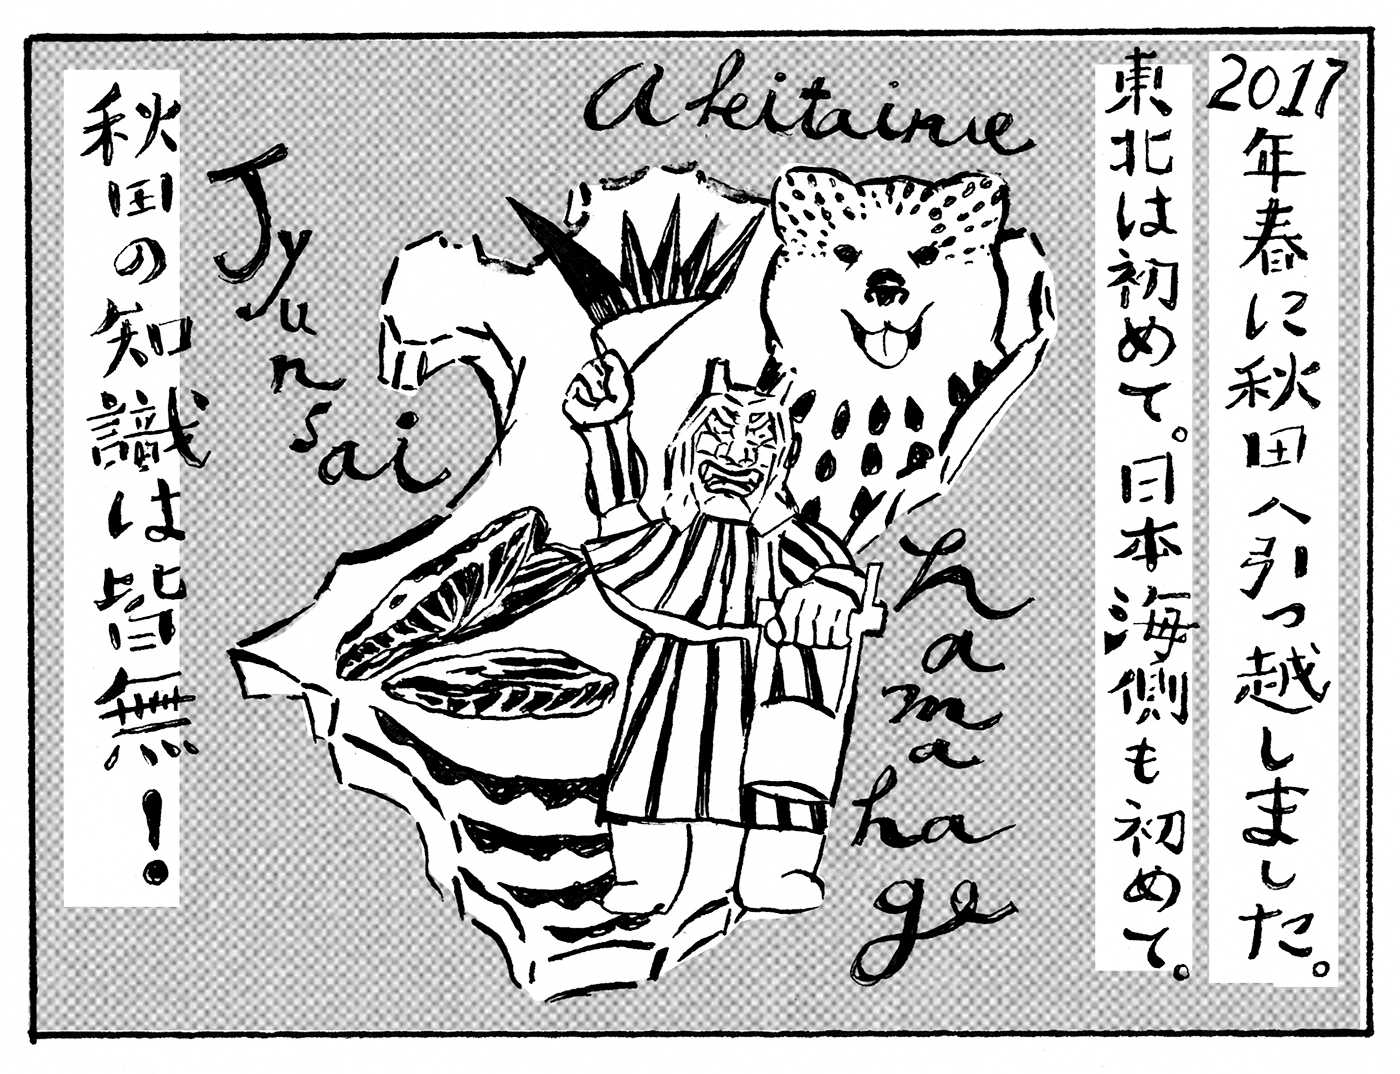 2017年春に秋田へ引っ越しました。
東北は初めて。日本海側も初めて。
Akitainue
hamahage
Jyunsai
秋田の知識は皆無!